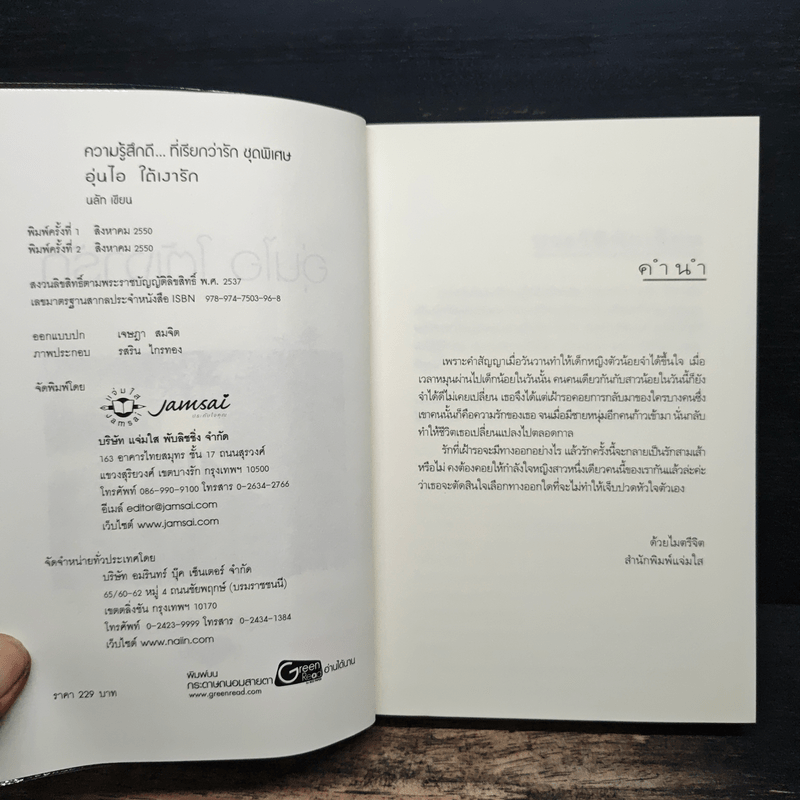 ความรู้สึกดี... ที่เรียกว่ารัก ชุดพิเศษ
อุ่นไอ ใต้เงารัก
นลัท เขียน
พิมพ์ครั้งที่ 1 สิงหาคม 2550
พิมพ์ครั้งที่ 2 สิงหาคม 2550
สงวนลิขสิทธิ์ตามพระราชบัญญัติลิขสิทธิ์ พ.ศ. 2537
เลขมาตรฐานสากลประจำหนังสือ ISBN 978-974-7503-96-8
ออกแบบปก เจษฎา สมจิต
ภาพประกอบ รสริน ไกรทอง
จัดพิมพ์โดย
แจ่มใส
jamsai
Jamsai
บริษัท แจ่มใส พับลิชชิ่ง จำกัด
163 อาคารไทยสมุทร ชั้น 17 ถนนสุรวงศ์
แขวงสุริยวงศ์ เขตบางรัก กรุงเทพฯ 10500
โทรศัพท์ 086-990-9100 โทรสาร 0-2634-2766
อีเมล์ editor@jamsai.com
เว็บไซต์ www.jamsai.com
จัดจำหน่ายทั่วประเทศโดย
บริษัท อมรินทร์ บุ๊ค เซ็นเตอร์ จำกัด
65/60-62 หมู่ 4 ถนนชัยพฤกษ์ (บรมราชชนนี)
เขตตลิ่งชัน กรุงเทพฯ 10170
โทรศัพท์ 0-2423-9999 โทรสาร 0-2434-1384
เว็บไซต์ www.naiin.com
พิมพ์บน
กระดาษถนอมสายตา
www.greenread.com
Green Read
อ่านได้นาน
ราคา 229 บาท
คำนำ
เพราะคำสัญญาเมื่อวันวานทำให้เด็กหญิงตัวน้อยจำได้ขึ้นใจ เมื่อ
เวลาหมุนผ่านไปเด็กน้อยในวันนั้น คนคนเดียวกันกับสาวน้อยในวันนี้ก็ยัง
จำได้ดีไม่เคยเปลี่ยน เธอจึงได้แต่เฝ้ารอคอยการกลับมาของใครบางคนซึ่ง
เขาคนนั้นก็คือความรักของเธอ จนเมื่อมีชายหนุ่มอีกคนก้าวเข้ามา นั่นกลับ
ทำให้ชีวิตเธอเปลี่ยนแปลงไปตลอดกาล
รักที่เฝ้ารอจะมีทางออกอย่างไร แล้วรักครั้งนี้จะกลายเป็นรักสามเส้า
หรือไม่ คงต้องคอยให้กำลังใจหญิงสาวหนึ่งเดียวคนนี้ของเรากันแล้วล่ะค่ะ
ว่าเธอจะตัดสินใจเลือกทางออกใดที่จะไม่ทำให้เจ็บปวดหัวใจตัวเอง
ด้วยไมตรีจิต
สำนักพิมพ์แจ่มใส